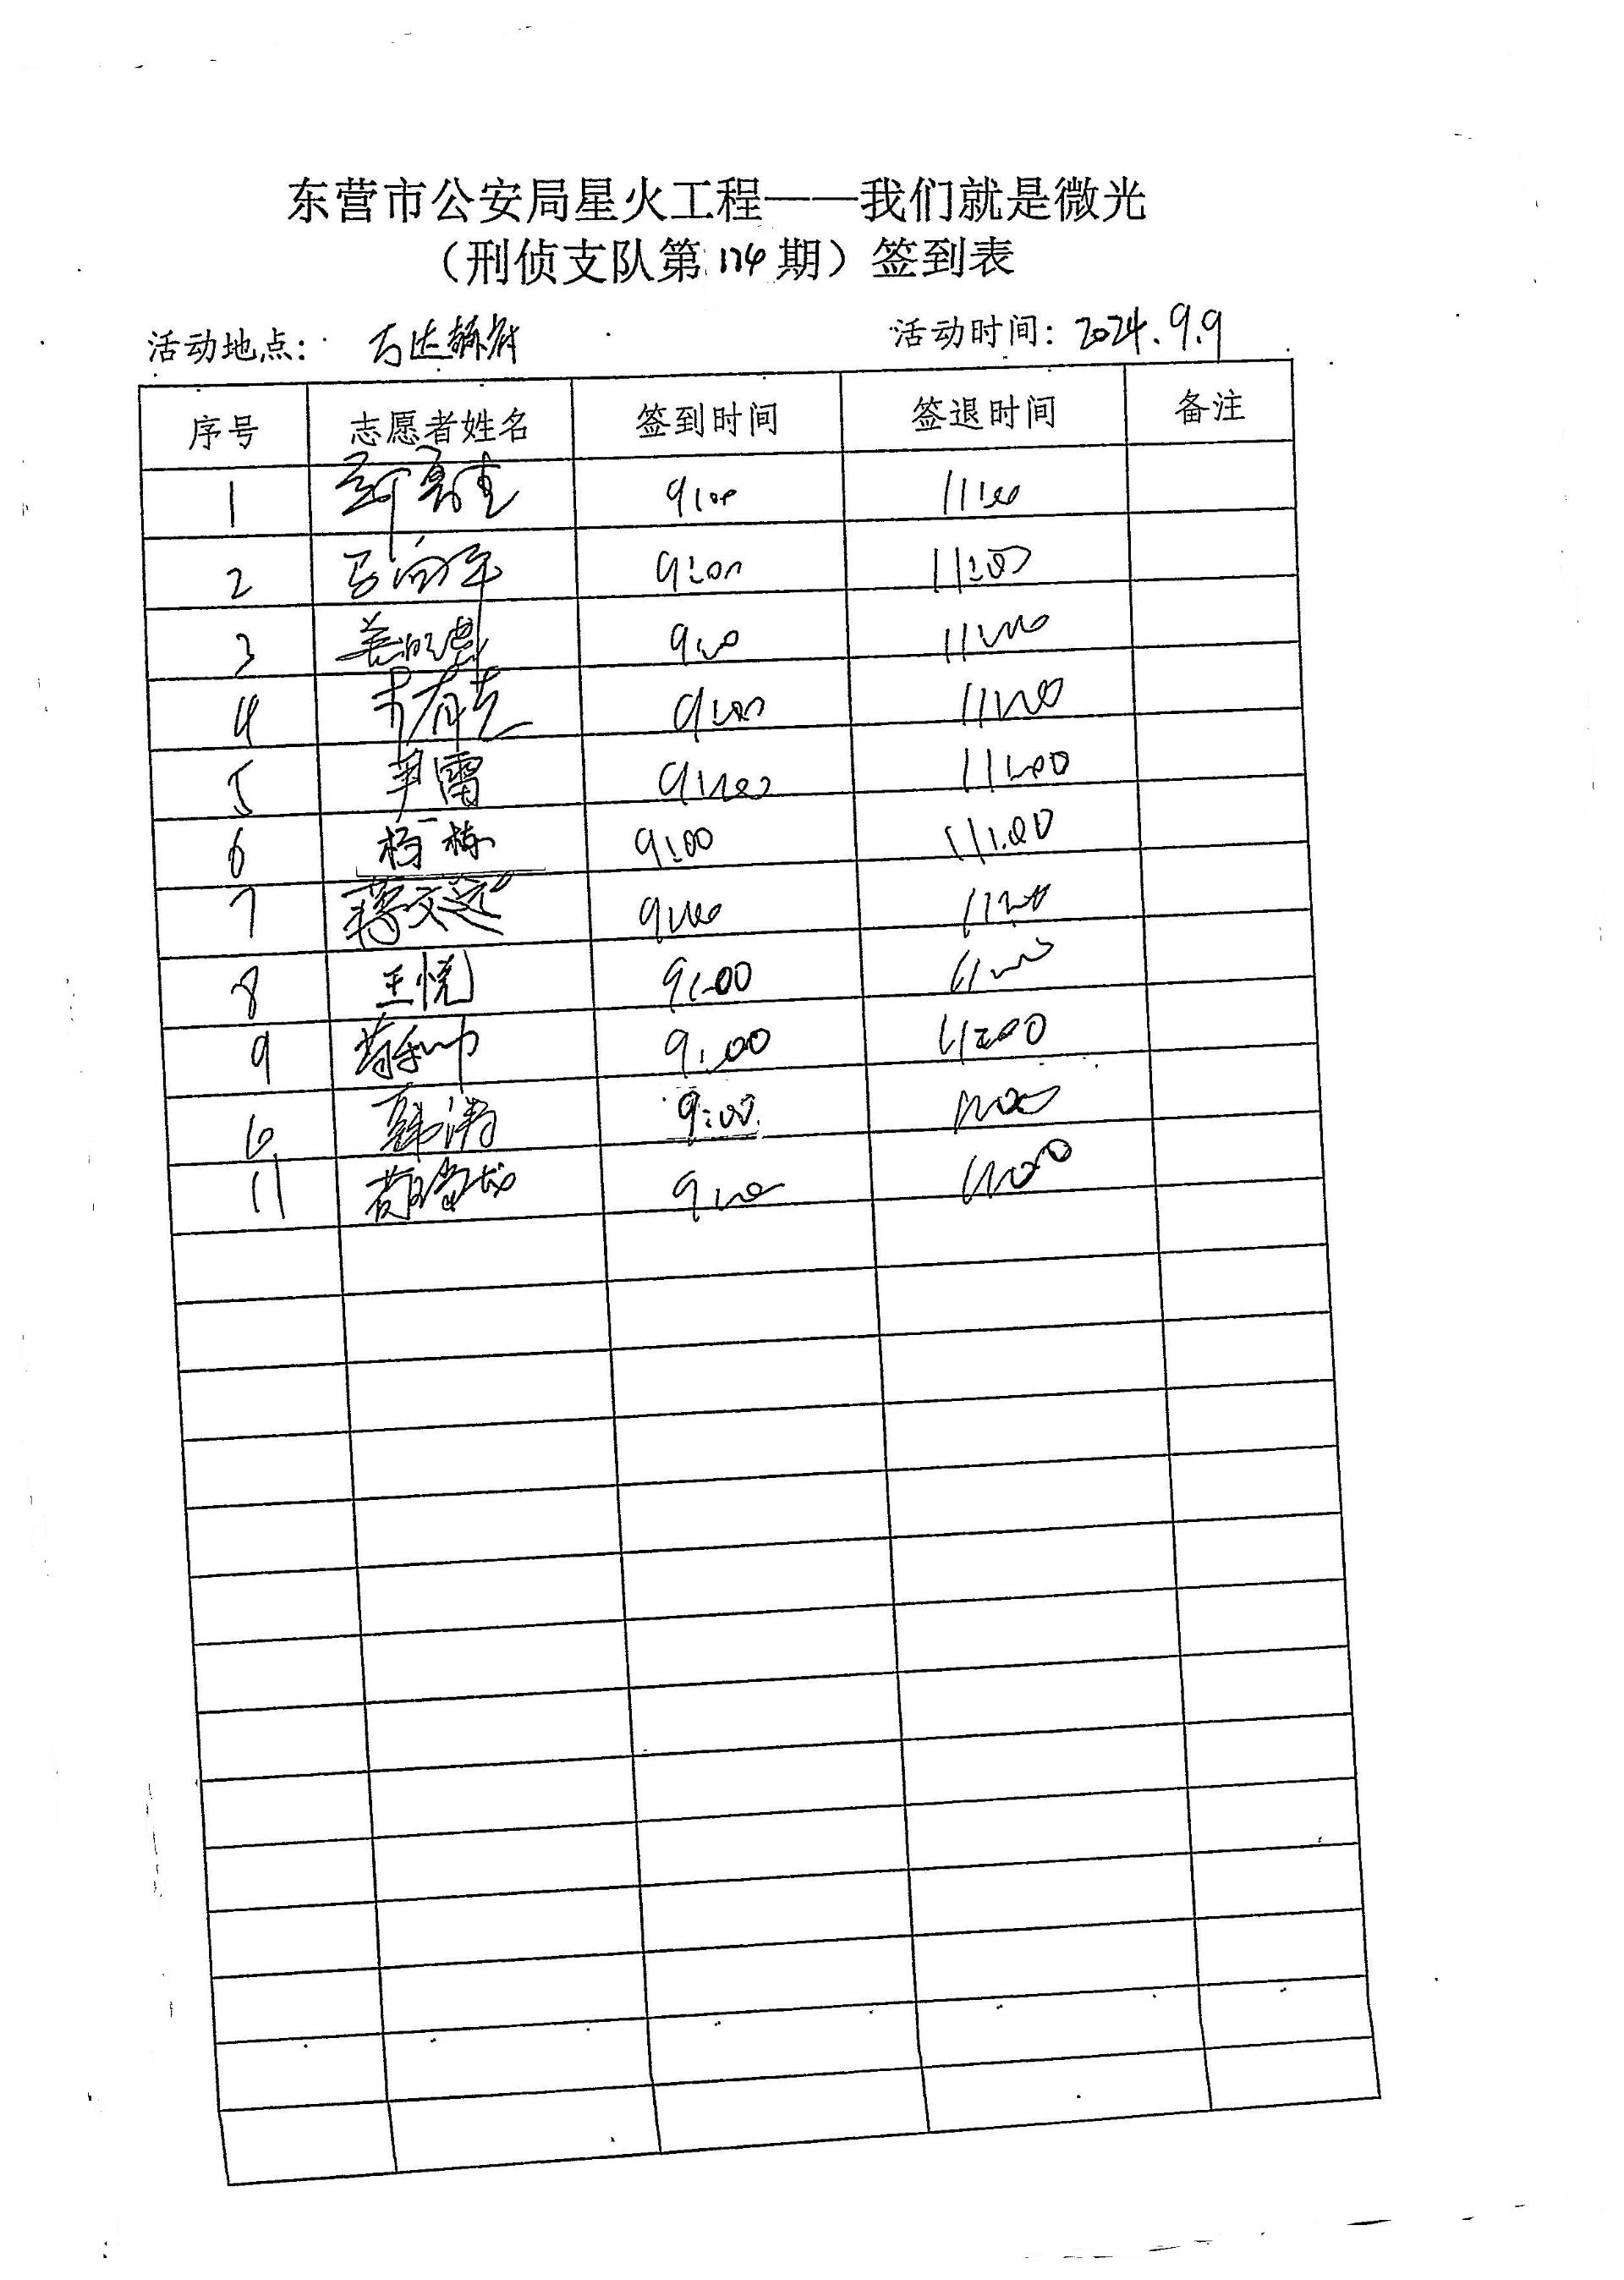 东营市公安局星火工程——我们就是微光
（刑侦支队第174期）签到表
活动地点： 万达赫府 活动时间：2024.9.9
序号 志愿者姓名 签到时间 签退时间 备注
1 9:00 11:00
2 9:00 11:00
3 9:00 11:00
4 9:00 11:00
5 雷 9:00 11:00
6 杨栋 9:00 11:00
7 蒋文选 9:00 11:00
8 王悦 9:00 11:00
9 9:00 11:00
10 韩涛 9:00 11:00
11 9:00 11:00